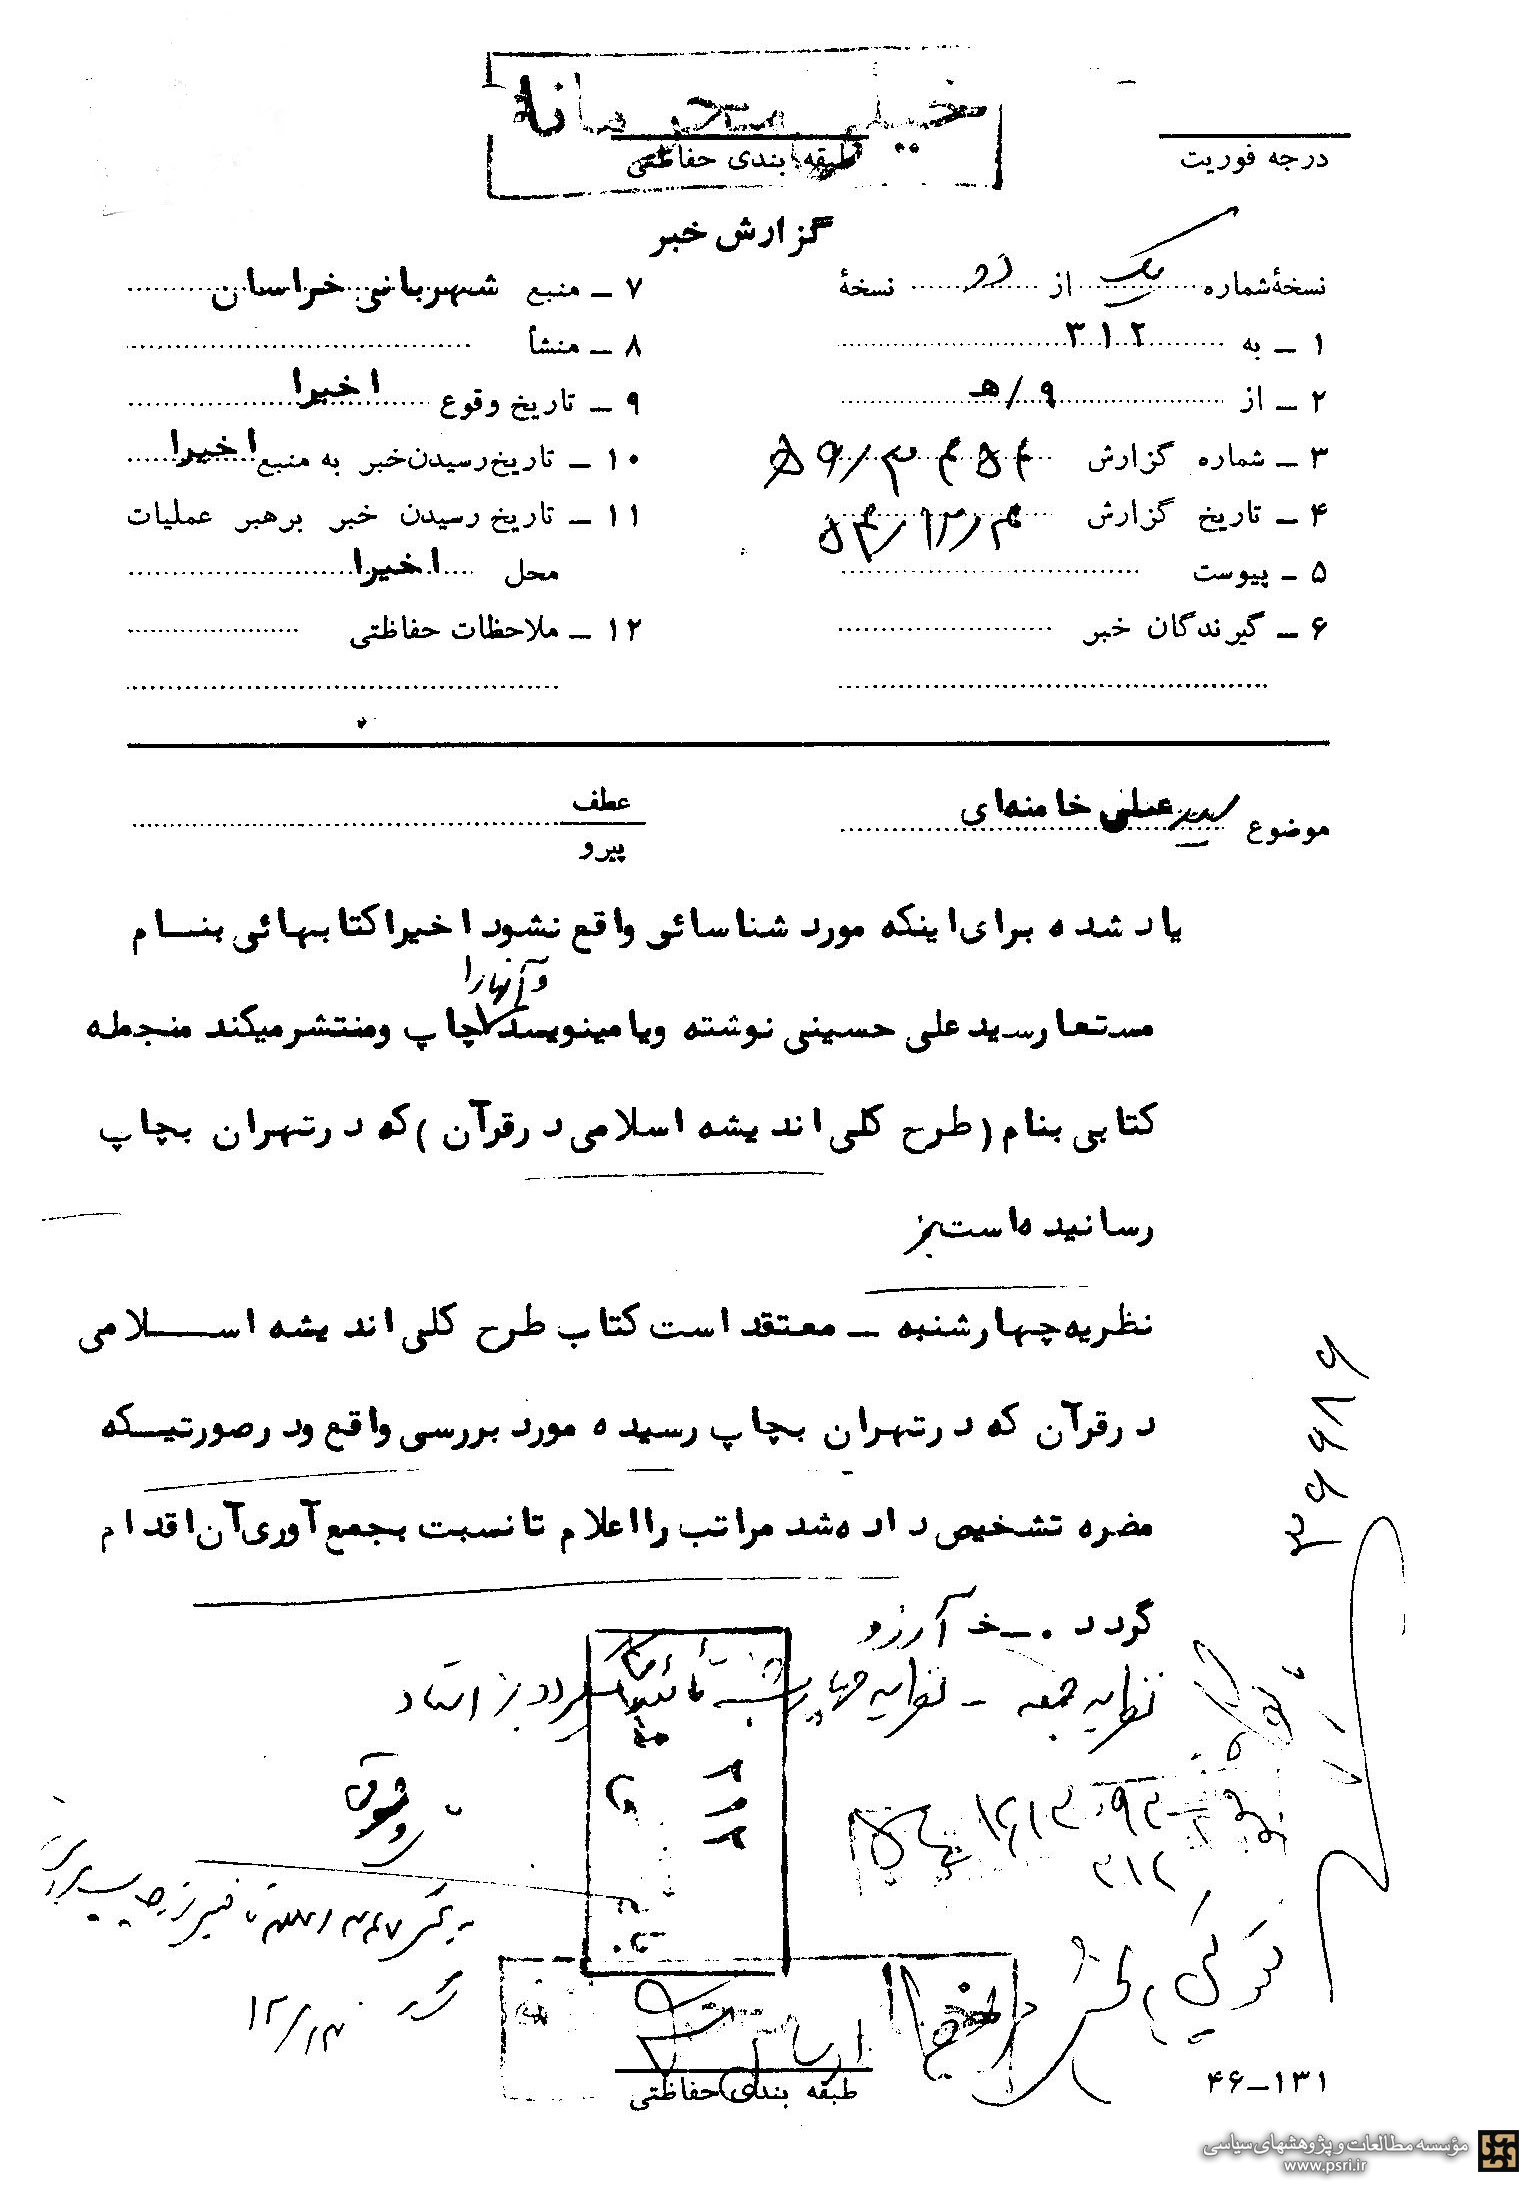 خیلی محرمانه
طبقه بندی حفاظتی
درجه فوریت
گزارش خبر
نسخهٔ شماره یک از دو نسخهٔ
۱ ـ به ۳۱۲
۲ ـ از ۹/هـ
۳ ـ شماره گزارش
۴ ـ تاریخ گزارش ۵۴/۱۲/۴
۵ ـ پیوست
۶ ـ گیرندگان خبر
۷ ـ منبع شهربانی خراسان
۸ ـ منشأ
۹ ـ تاریخ وقوع اخیرا
۱۰ ـ تاریخ رسیدن خبر به منبع اخیرا
۱۱ ـ تاریخ رسیدن خبر برهبر عملیات
محل اخیرا
۱۲ ـ ملاحظات حفاظتی
موضوع سید علی خامنه‌ای
عطف
پیرو
یاد شده برای اینکه مورد شناسائی واقع نشود اخیرا کتابهائی بنام
مستعار سید علی حسینی نوشته ویا مینویسد و آنها را چاپ ومنتشر میکند منجمله
کتابی بنام (طرح کلی اندیشه اسلامی در قرآن) که در تهران بچاپ
رسانیده است
نظریه چهارشنبه ـ معتقد است کتاب طرح کلی اندیشه اسلامی
در قرآن که در تهران بچاپ رسیده مورد بررسی واقع ودر صورتیکه
مضره تشخیص داده شد مراتب را اعلام تا نسبت بجمع آوری آن اقدام
گردد . ـ خ آرزو
نظریه جمعه ـ نظریه چهارشنبه تأئید میگردد
۳۱۲
۱۲/۱۳
طبقه بندی حفاظتی
۴۶-۱۳۱
مؤسسه مطالعات و پژوهشهای سیاسی
www.psri.ir